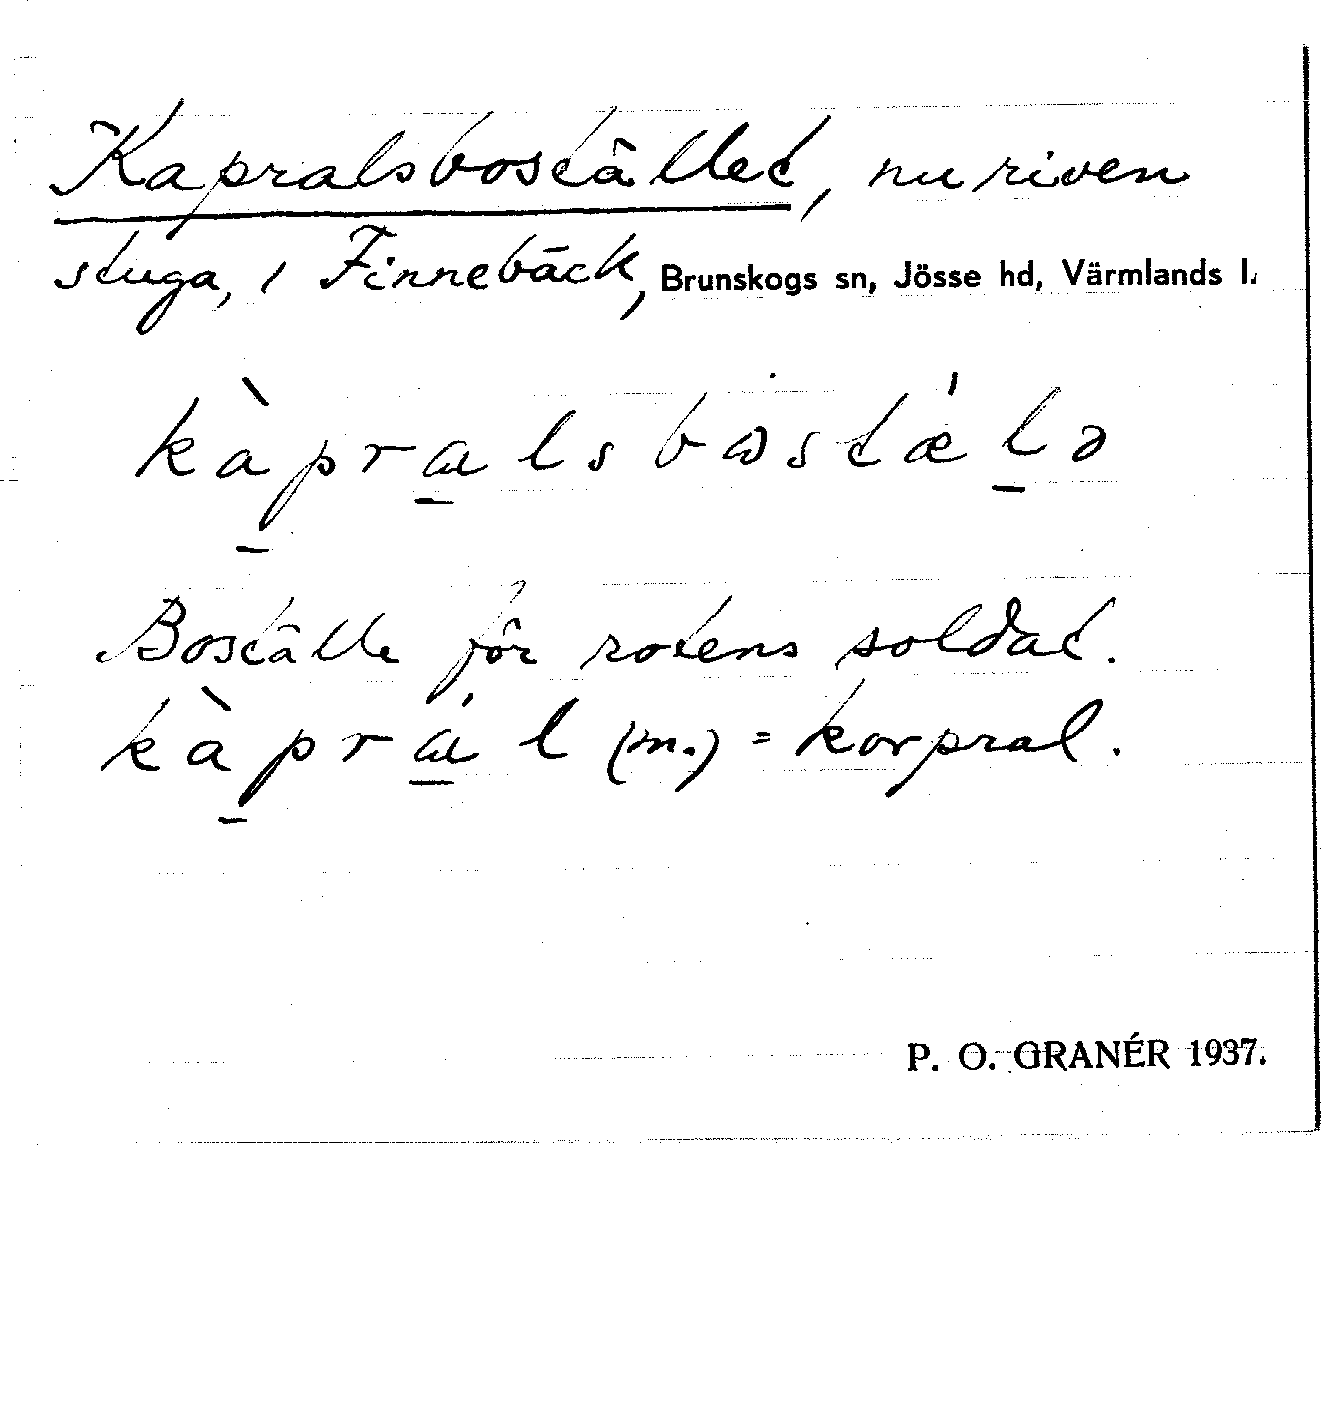 Kapralsbostället, nu riven
stuga, i Finnebäck, Brunskogs sn, Jösse hd, Värmlands l.
kàp̱ra̱lsbωstǽḻə
Boställe för rotens soldat.
kàp̱rá̱l (m.) = korpral.
P. O. GRANÉR 1937.